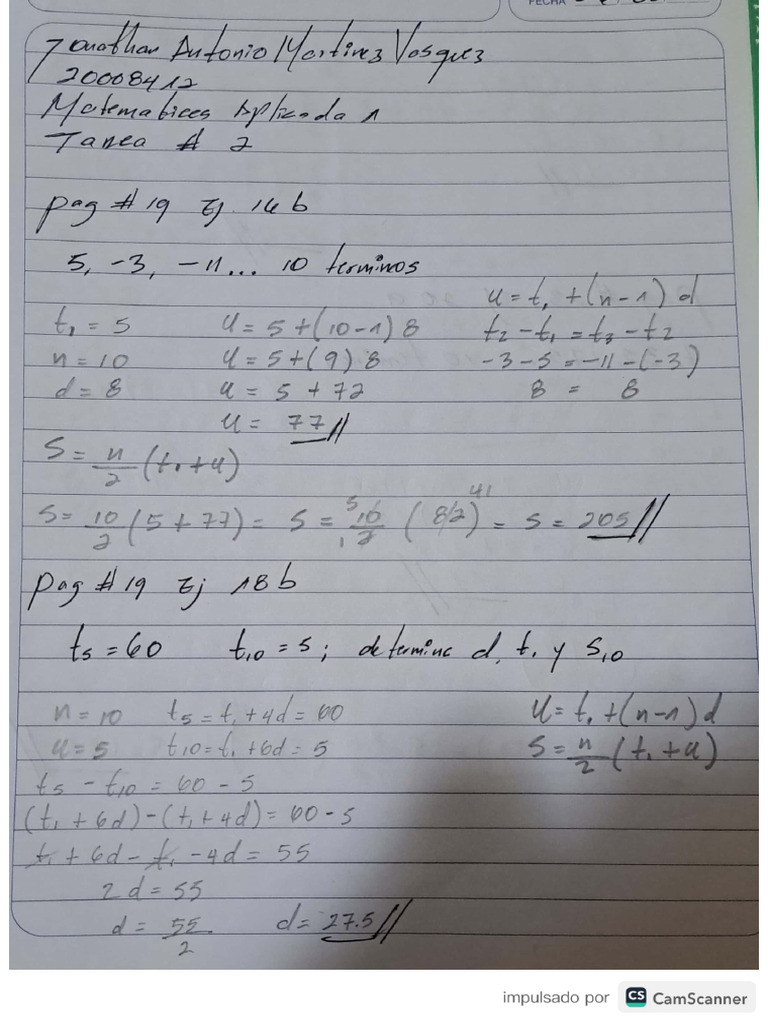 FECHA
Jonathan Antonio Martinez Vasquez
20008412
Matematices Aplicada 1
Tarea # 2
pag # 19 Ej. 14 b
5, -3, -11... 10 terminos
u = t₁ + (n-1) d
t₁ = 5 u = 5+(10-1) 8 t₂ - t₁ = t₃ - t₂
n = 10 u = 5+(9) 8 -3-5 = -11-(-3)
d = 8 u = 5 + 72 8 = 8
u = 77//
S = n/2 (t₁+u)
S = 10/2 (5+77) = S = 5 10/1 2 (82) 41 = S = 205//
pag # 19 Ej 18 b
t₅ = 60 t₁₀ = 5; determine d, t₁ y S₁₀
n = 10 t₅ = t₁ + 4d = 60 u = t₁ + (n-1) d
u = 5 t₁₀ = t₁ + 6d = 5 S = n/2 (t₁ + u)
t₅ - t₁₀ = 60 - 5
(t₁ + 6d) - (t₁ + 4d) = 60 - 5
t₁ + 6d - t₁ - 4d = 55
2d = 55
d = 55/2 d = 27.5//
impulsado por CS CamScanner